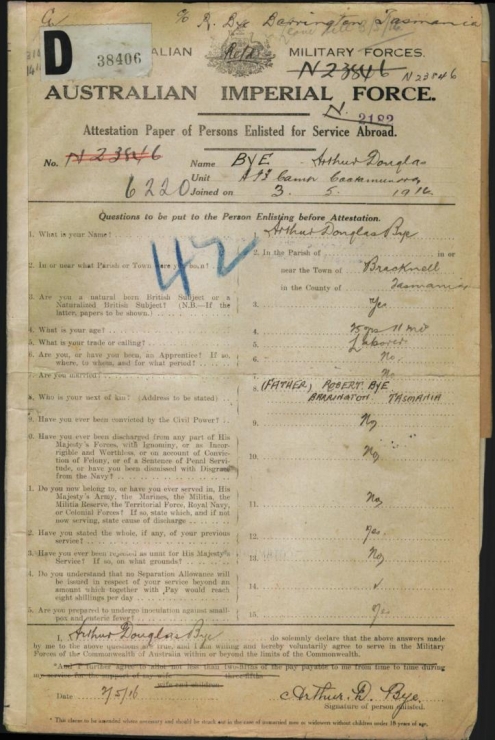 R. Bye Barrington Tasmania
D 38406
MILITARY FORCES.
N23846 N23846
AUSTRALIAN IMPERIAL FORCE.
N. 2182
Attestation Paper of Persons Enlisted for Service Abroad.
No. N23846 Name BYE Arthur Douglas
6220 Unit
Joined on 3. 5. 1916
Questions to be put to the Person Enlisting before Attestation.
1. What is your Name? 1. Arthur Douglas Bye
2. In the Parish of in or
2. In or near what Parish or Town were you born? near the Town of Bracknell
in the County of Tasmania
3. Are you a natural born British Subject or a
Naturalized British Subject? (N.B.—If the
latter, papers to be shown.) 3. Yes
4. What is your age? 4.
5. What is your trade or calling? 5. Laborer
6. Are you, or have you been, an Apprentice? If so,
where, to whom, and for what period? 6. No
7. Are you married? 7. No
8. (FATHER) ROBERT BYE
8. Who is your next of kin? (Address to be stated) BARRINGTON TASMANIA
9. Have you ever been convicted by the Civil Power? 9. No
Have you ever been discharged from any part of His
Majesty's Forces, with Ignominy, or as Incor-
rigible and Worthless, or on account of Convic-
tion of Felony, or of a Sentence of Penal Servi-
tude, or have you been dismissed with Disgrace
from the Navy? 10. No
1. Do you now belong to, or have you ever served in, His
Majesty's Army, the Marines, the Militia, the
Militia Reserve, the Territorial Force, Royal Navy,
or Colonial Forces? If so, state which, and if not
now serving, state cause of discharge 11. No
2. Have you stated the whole, if any, of your previous
service? 12. Yes
3. Have you ever been rejected as unfit for His Majesty's
Service? If so, on what grounds? 13. No
4. Do you understand that no Separation Allowance will
be issued in respect of your service beyond an
amount which together with Pay would reach
eight shillings per day 14. ✓
5. Are you prepared to undergo inoculation against small-
pox and enteric fever? 15. Yes
42
I, Arthur Douglas Bye do solemnly declare that the above answers made
by me to the above questions are true, and I am willing and hereby voluntarily agree to serve in the Military
Forces of the Commonwealth of Australia within or beyond the limits of the Commonwealth.
*And I further agree to allot not less than two-fifths of the pay payable to me from time to time during
my service for the support of my wife
wife and children
Date 3/5/16 Arthur. D. Bye.
Signature of person enlisted.
* This clause to be amended where necessary and should be struck out in the case of unmarried men or widowers without children under 18 years of age.